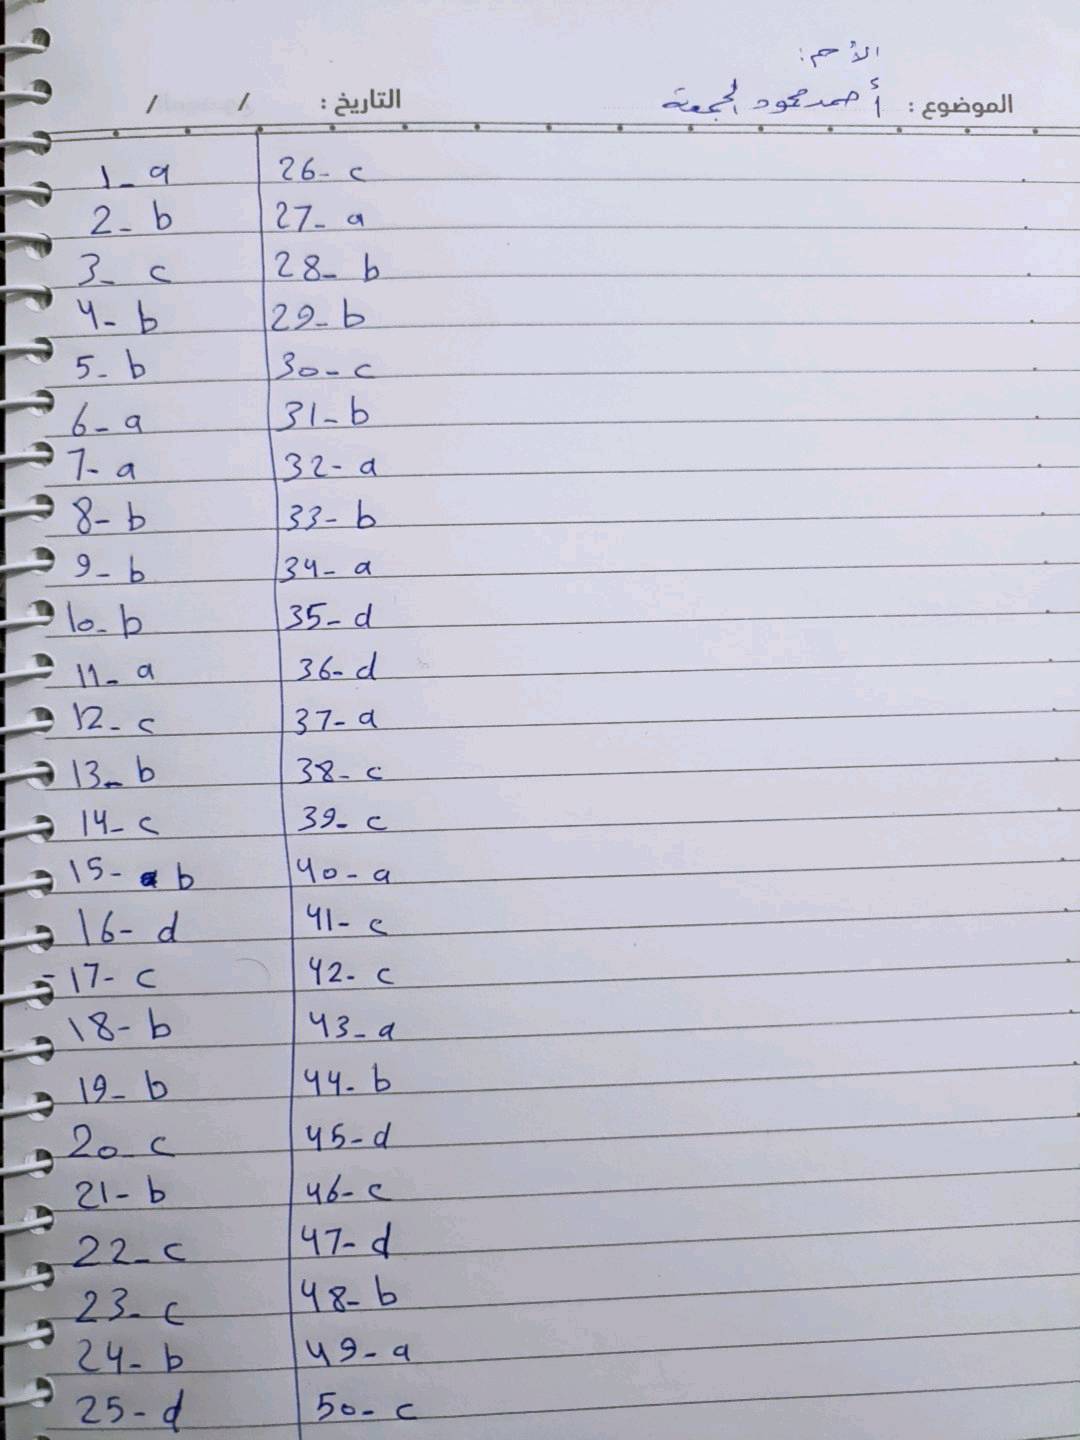 الأسم:
الموضوع : أحمد محمود الجمعة
التاريخ : / /
1- a
2- b
3- c
4- b
5- b
6- a
7- a
8- b
9- b
10- b
11- a
12- c
13- b
14- c
15- b
16- d
17- c
18- b
19- b
20- c
21- b
22- c
23- c
24- b
25- d
26- c
27- a
28- b
29- b
30- c
31- b
32- a
33- b
34- a
35- d
36- d
37- a
38- c
39- c
40- a
41- c
42- c
43- a
44- b
45- d
46- c
47- d
48- b
49- a
50- c